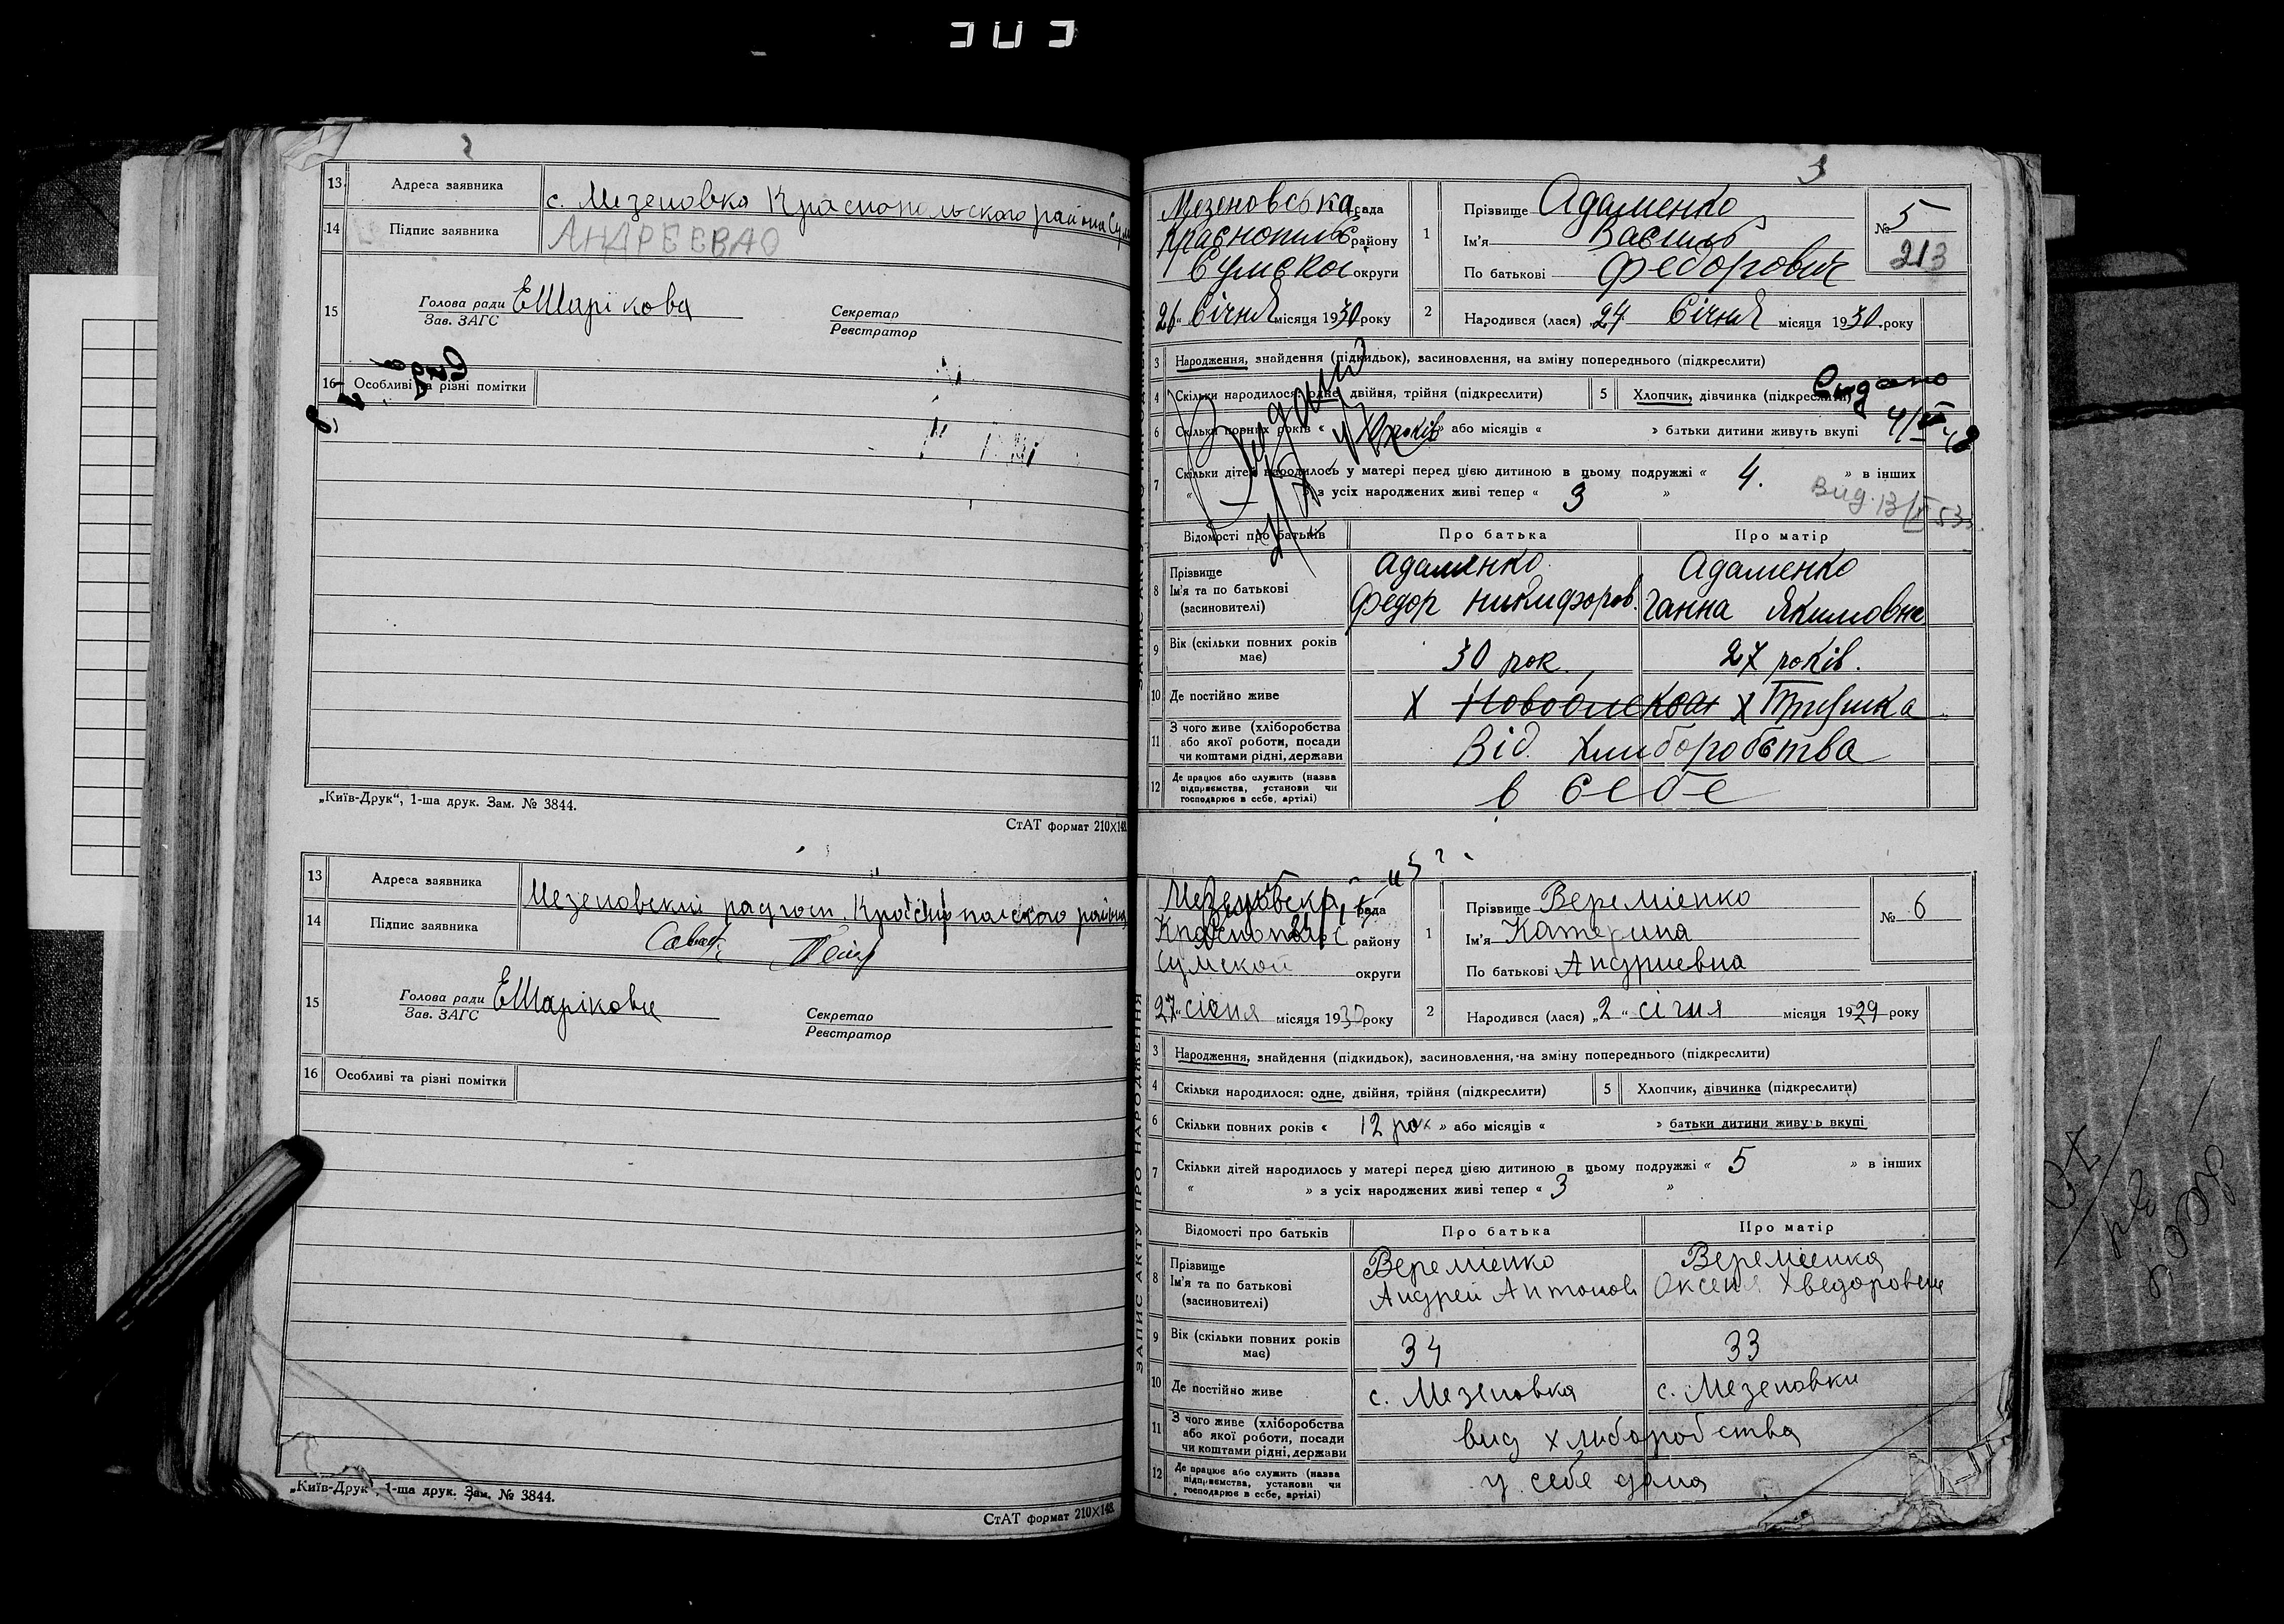 303
2
13 Адреса заявника с. Мезеновка Краснопольского района Сум
14 Підпис заявника АНДРЕЕВАО
15 Голова ради ЕШарікова Секретар
Зав. ЗАГС Реєстратор
16 Особливі та різні помітки
„Київ-Друк“, 1-ша друк. Зам. № 3844.
СтАТ формат 210×148.
13 Адреса заявника Мезеновский
14 Підпис заявника
15 Голова ради ЕШарікова Секретар
Зав. ЗАГС Реєстратор
16 Особливі та різні помітки
„Київ-Друк“, 1-ша друк. Зам. № 3844.
СтАТ формат 210×148.
3
Мезеновська рада
району
Сумської округи
26 Січня місяця 1930 року
1 Прізвище Адаменко
Ім'я Василь
По батькові Федорович
№ 5
213
2 Народився (лася) 24 Січня місяця 1930 року
3 Народження, знайдення (підкидьок), засиновлення, на зміну попереднього (підкреслити)
4 Скільки народилося: одне, двійня, трійня (підкреслити) 5 Хлопчик, дівчинка (підкреслити)
Видано
6 Скільки повних років « 10 років » або місяців « » батьки дитини живуть вкупі
7 Скільки дітей народилось у матері перед цією дитиною в цьому подружжі « 4. » в інших
« » з усіх народжених живі тепер « 3 »
Відомості про батьків Про батька Про матір
8 Прізвище Адаменко Адаменко
Ім'я та по батькові Федор Никифоров. Ганна Якимовна
(засиновителі)
9 Вік (скільки повних років має) 30 рок. 27 років.
10 Де постійно живе х х
11 З чого живе (хліборобства або якої роботи, посади чи коштами рідні, держави Від. хлиборобства
12 Де працює або служить (назва підприємства, установи чи господарює в себе, артілі) в себе
ЗАПИС АКТУ ПРО НАРОДЖЕННЯ
рада
району
Сумской округи
27 січня місяця 1930 року
1 Прізвище Веремієнко
Ім'я Катерина
По батькові Андриевна
№ 6
2 Народився (лася) „2“ січня місяця 1929 року
3 Народження, знайдення (підкидьок), засиновлення, на зміну попереднього (підкреслити)
4 Скільки народилося: одне, двійня, трійня (підкреслити) 5 Хлопчик, дівчинка (підкреслити)
6 Скільки повних років « 12 рок » або місяців « » батьки дитини живуть вкупі
7 Скільки дітей народилось у матері перед цією дитиною в цьому подружжі « 5 » в інших
« » з усіх народжених живі тепер « 3 »
Відомості про батьків Про батька Про матір
8 Прізвище Веремієнко Веремієнка
Ім'я та по батькові Андрей Антонов Оксеня Хведоровна
(засиновителі)
9 Вік (скільки повних років має) 34 33
10 Де постійно живе с. Мезеновка с. Мезеновки
11 З чого живе (хліборобства або якої роботи, посади чи коштами рідні, держави вид хлиборобства
12 Де працює або служить (назва підприємства, установи чи господарює в себе, артілі) у себе дома
ЗАПИС АКТУ ПРО НАРОДЖЕННЯ